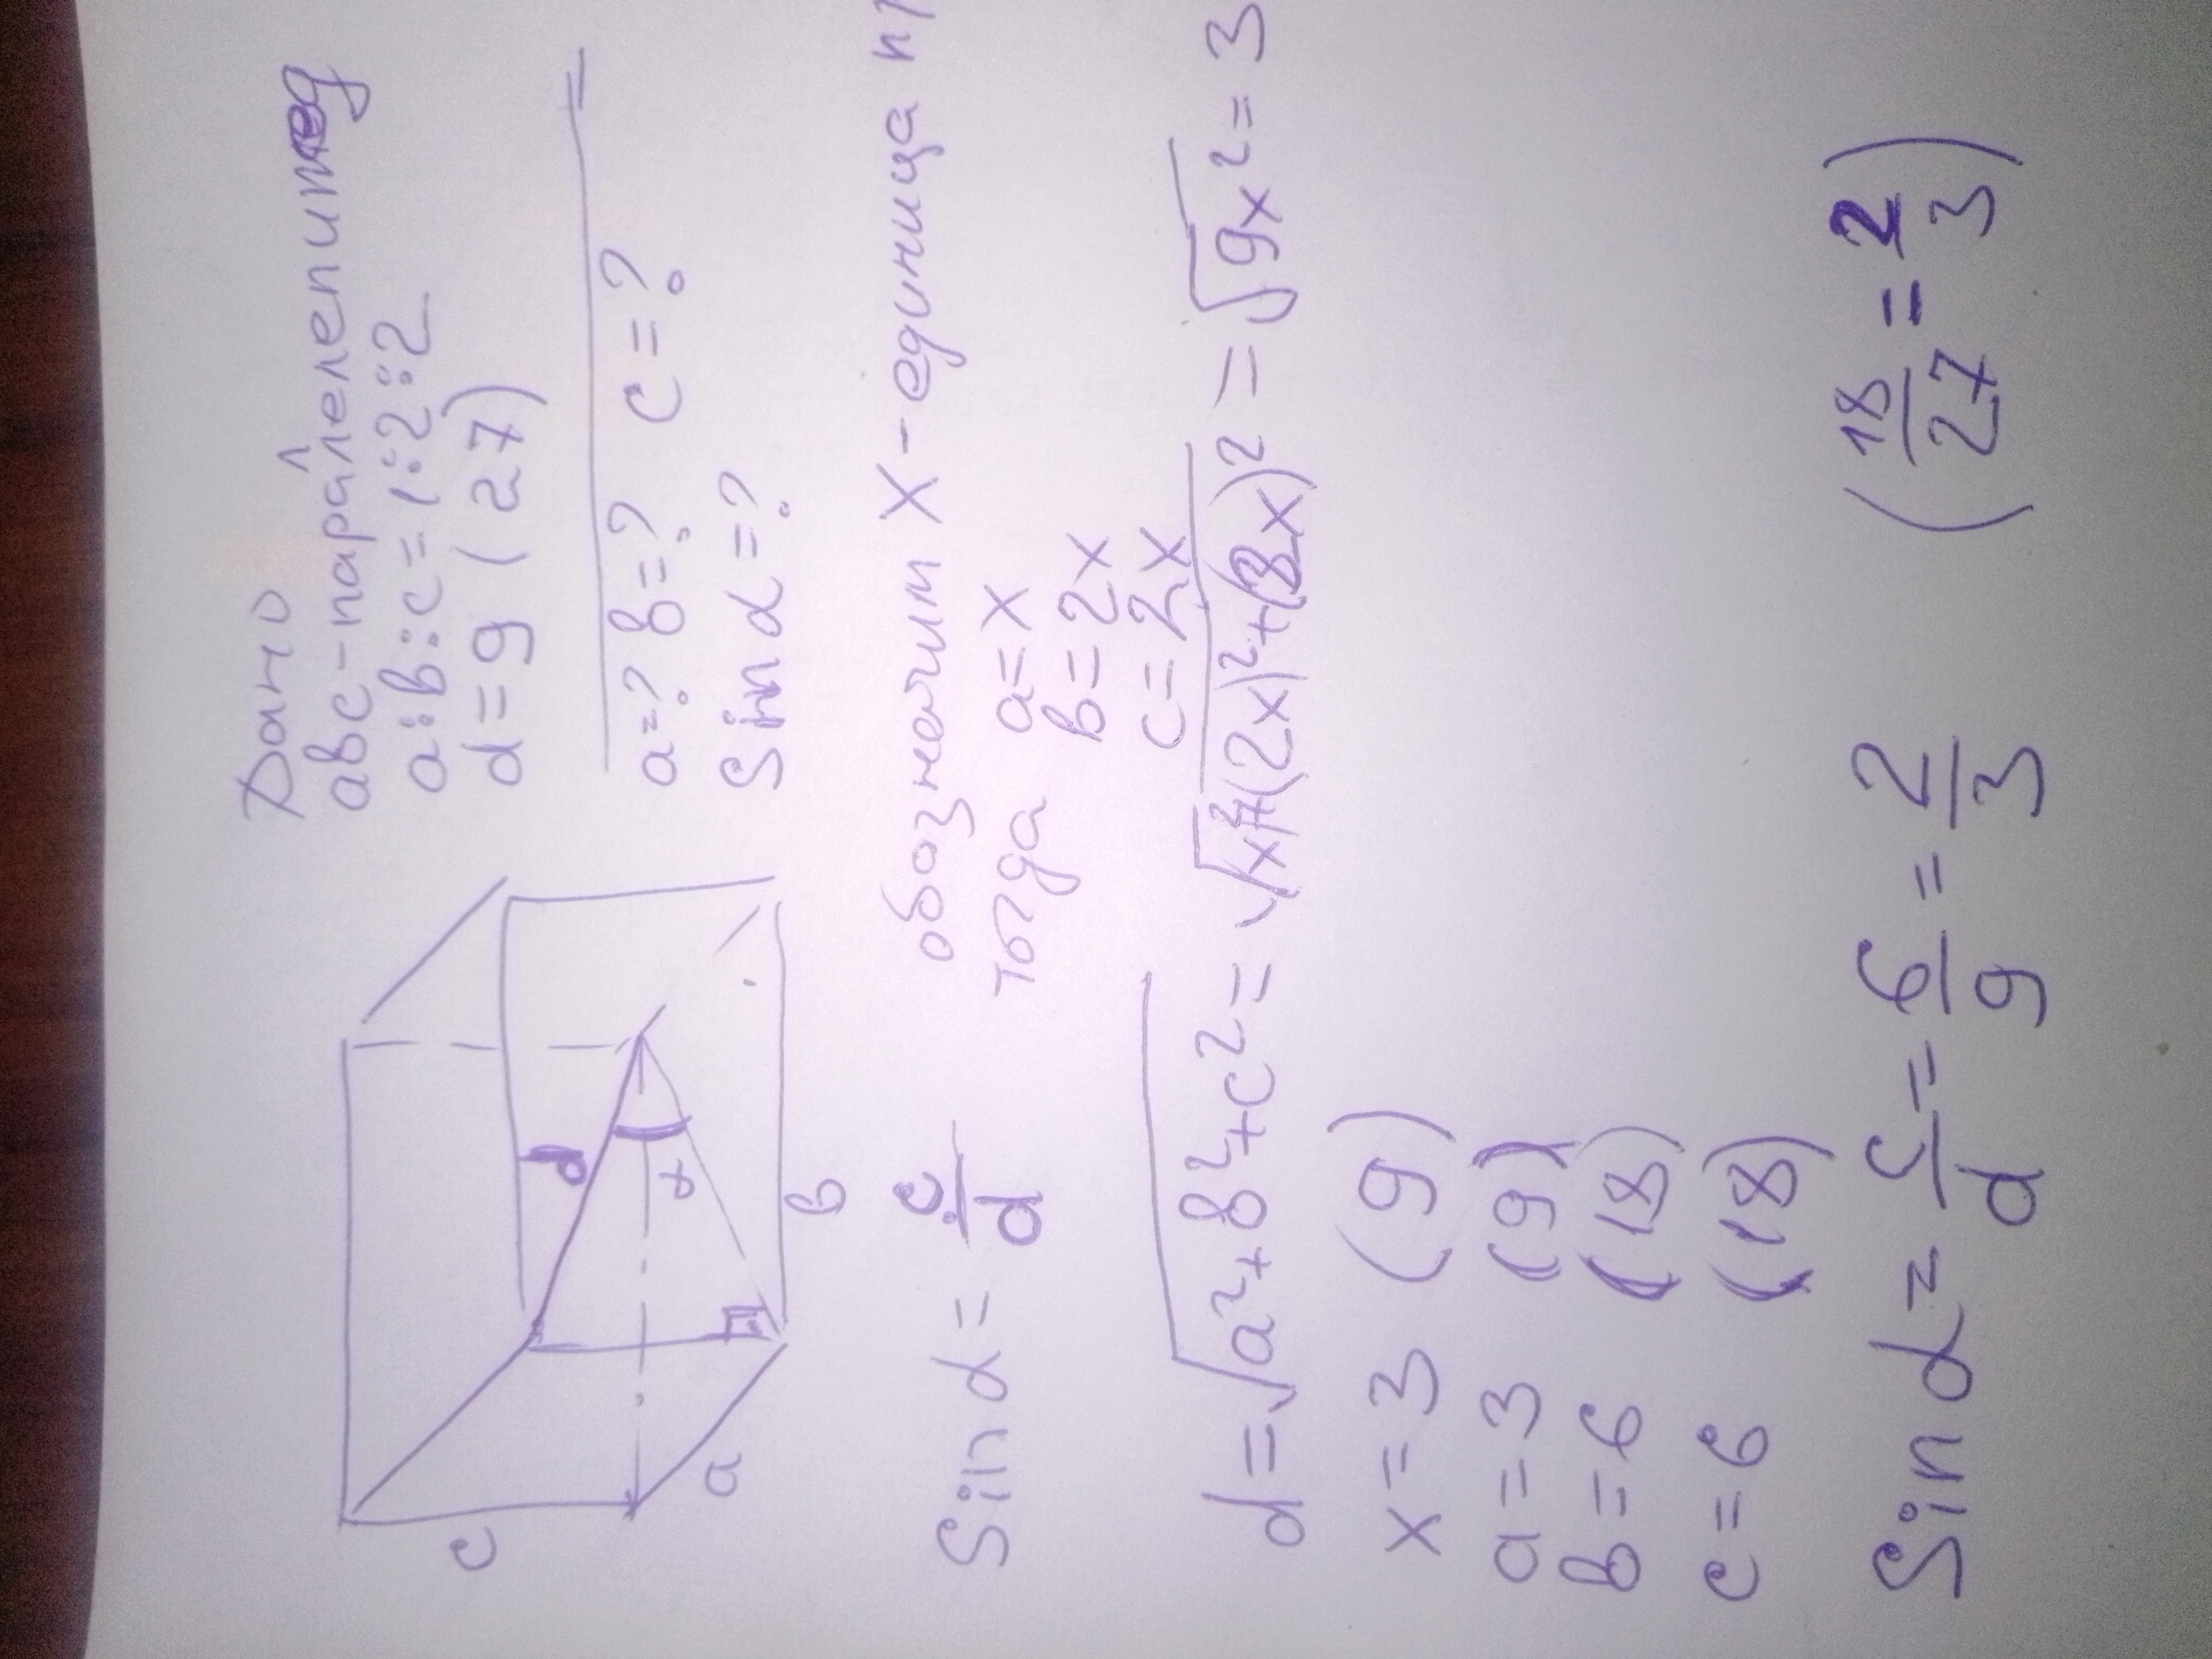 Дано
авс-паралелепипед
л
а:в:с=1:2:2
d=9 (27)
а=? в=? с=?
Sin α=?
c
d
α
a
в
Sin α = c/d
обозначим X-единица
тогда a=x
в=2x
c=2x
d=√a²+в²+c²=√x²+(2x)²+(2x)²=√9x²=3
x=3 (9)
a=3 (9)
в=6 (18)
c=6 (18)
Sin α = c/d = 6/9 = 2/3 (18/27 = 2/3)